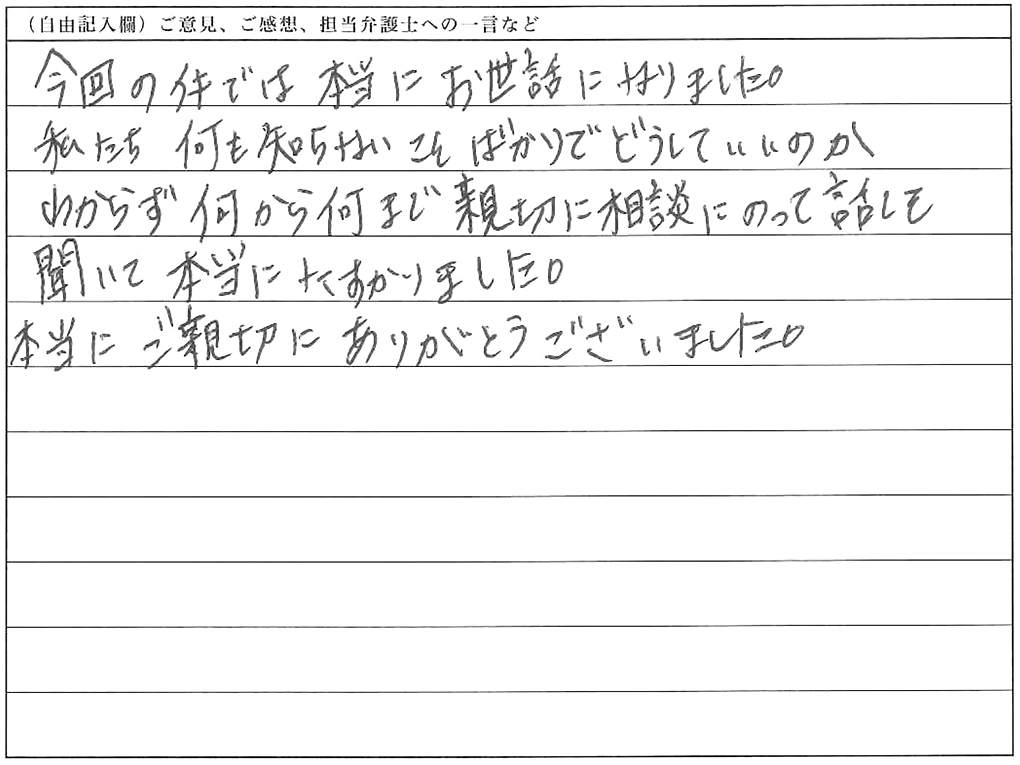 （自由記入欄）ご意見、ご感想、担当弁護士への一言など
今回の件では本当にお世話になりました。
私たち 何も知らないことばかりでどうしていいのか
わからず何から何まで親切に相談にのって話しを
聞いて本当にたすかりました。
本当にご親切にありがとうございました。